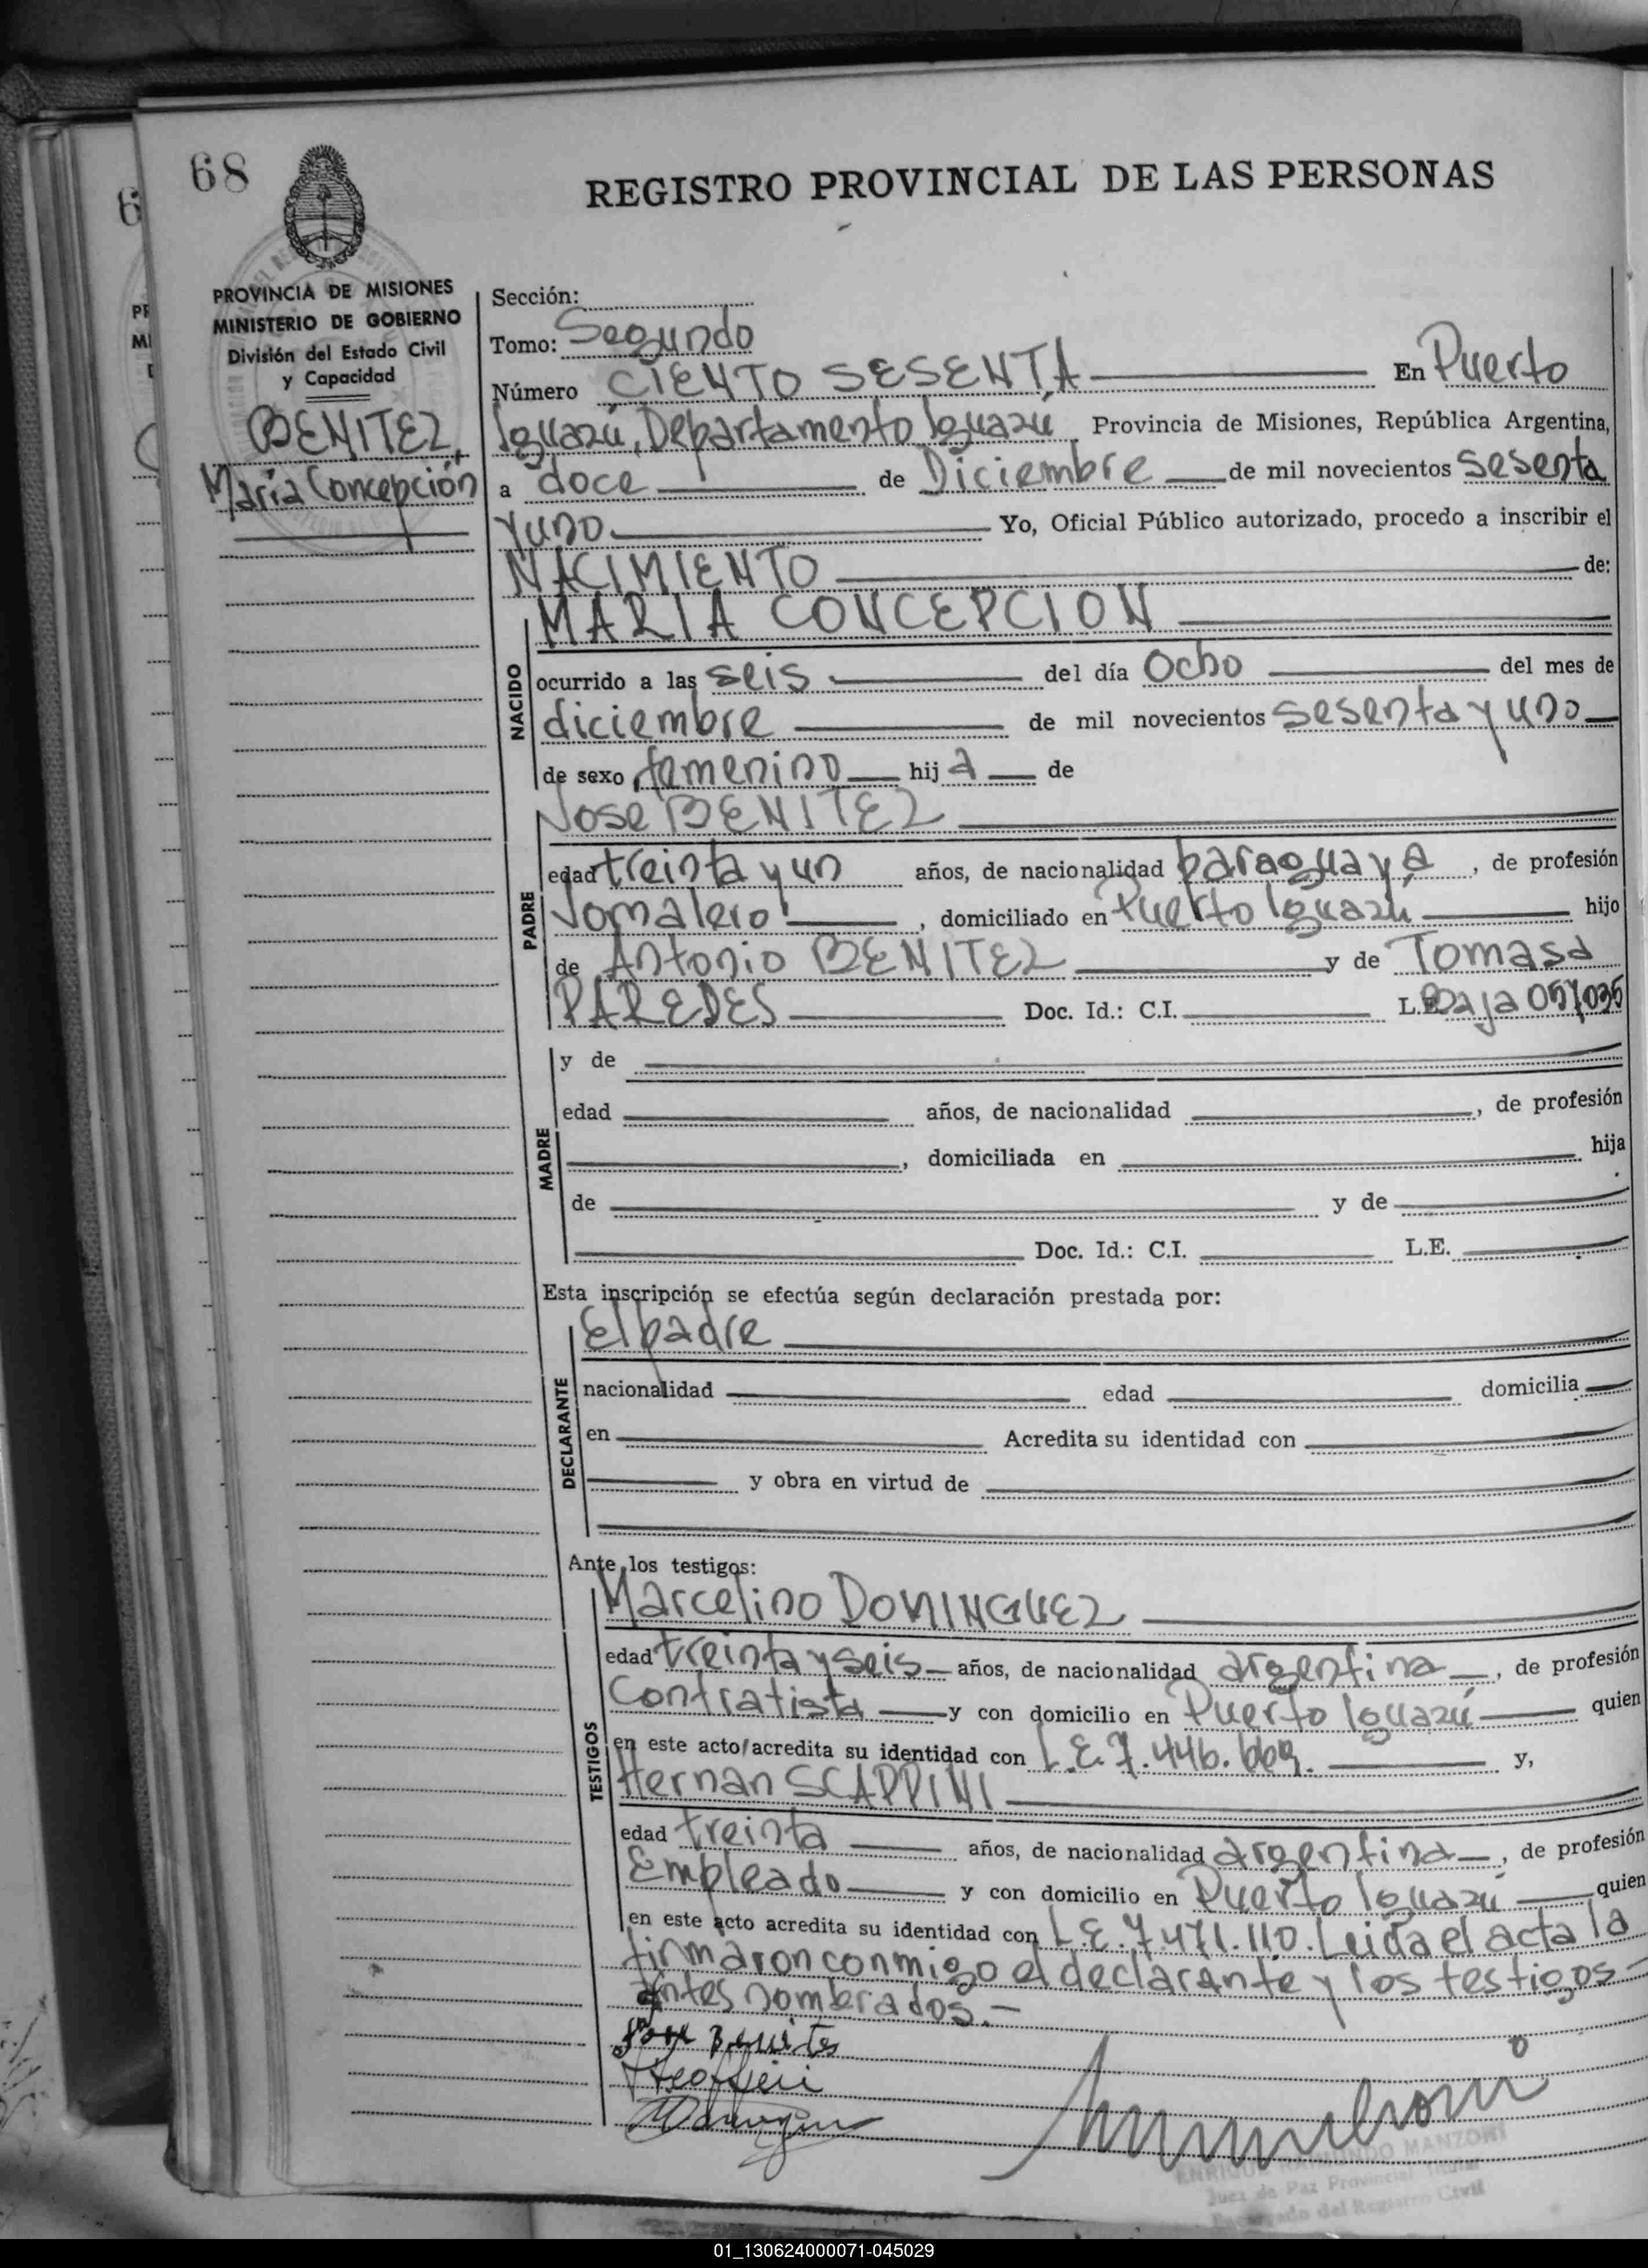 68
REGISTRO PROVINCIAL DE LAS PERSONAS
PROVINCIA DE MISIONES
MINISTERIO DE GOBIERNO
División del Estado Civil
y Capacidad
BENITEZ,
María Concepción
Sección:
Tomo: Segundo
Número CIENTO SESENTA En Puerto
Iguazú, Departamento Iguazú Provincia de Misiones, República Argentina,
a doce de Diciembre de mil novecientos sesenta
y uno. Yo, Oficial Público autorizado, procedo a inscribir el
NACIMIENTO de:
MARIA CONCEPCION
NACIDO
ocurrido a las seis del día ocho del mes de
diciembre de mil novecientos sesenta y uno
de sexo femenino hij a de
Jose BENITEZ
PADRE
edad treinta y un años, de nacionalidad paraguaya, de profesión
Jornalero, domiciliado en Puerto Iguazú hijo
de Antonio BENITEZ y de Tomasa
PAREDES Doc. Id.: C.I. L.E. Baja 057035
MADRE
y de
edad años, de nacionalidad , de profesión
, domiciliada en hija
de y de
Doc. Id.: C.I. L.E.
Esta inscripción se efectúa según declaración prestada por:
DECLARANTE
El padre
nacionalidad edad domicilia
en Acredita su identidad con
y obra en virtud de
Ante los testigos:
TESTIGOS
Marcelino DOMINGUEZ
edad treinta y seis años, de nacionalidad argentina, de profesión
Contratista y con domicilio en Puerto Iguazú quien
en este acto acredita su identidad con L.E. 7.446.669. y,
Hernan SCAPPINI
edad treinta años, de nacionalidad argentina, de profesión
Empleado y con domicilio en Puerto Iguazú quien
en este acto acredita su identidad con L.E. 7.471.110. Leida el acta la
firmaron conmigo el declarante y los testigos
antes nombrados.-
Jose Benites
ENRIQUE RAIMUNDO MANZONI
Juez de Paz Provincial Titular
Encargado del Registro Civil
01_130624000071-045029